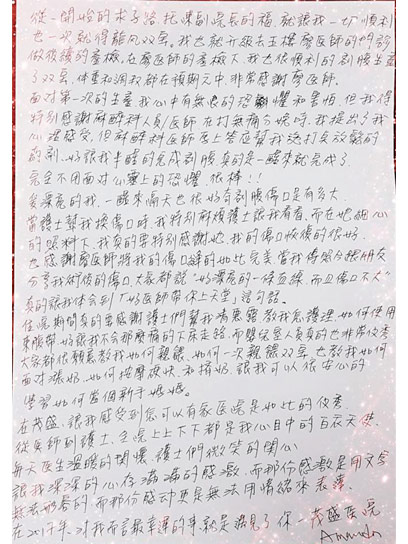 從一開始的求子路托陳副院長的福,就讓我一切順利
也一次就得龍鳳双宝。我也就升級去王樓廖医師的門診
做後續的產檢,在廖医師的產檢下我也很順利的剖腹生產
了双宝,体重和週數都在預期之中非常感謝廖医師。
面對第一次的生產,我心中有無限的恐懼和害怕,但我得
特別感謝麻醉科人員医師在打無痛分娩時,我提出了我
心裡感受,但麻醉科医師馬上答應幫我添打点放鬆的
藥劑,好讓我半睡的完成剖腹真的是一醒來就完成了
完全不用面對心靈上的恐懼,很棒!!
愛漂亮的我,一醒來隔天也很好奇剖腹傷口是有多大
當護士幫我換傷口時,我特別麻煩護士讓我看看,而在她細心
的照料下我真的要特別感謝她,我的傷口恢復的很好,
也感謝廖医師將我的傷口縫的如此完美當我傳照片跟朋友
分享我術後的傷口大家都說"好漂亮的一條直線,而且傷口不大"
真的讓我体会到「好医師帶你上天堂」這句話。
住院期間真的要感謝護士們幫我清惡露,教我怎護理,如何使用
束腹帶,好讓我不会那麼痛的下床走路,而嬰兒室人員真的也非常优秀
大家都很願意教我如何親餵,如何一次親餵双宝,也教我如何
面對漲奶,如何按摩硬块和擠奶,讓我可以很安心的
學習如何當個新手媽媽。
在茂盛,讓我感受到您可以有家医院是如此的优秀
從医師到護士,全院上上下下都是我心目中的白衣天使,
每天医生溫暖的関懷,護士們微笑的関心
讓我深深的心存滿滿的感激,而那份感激是用文字
無法形容的,而那份感动更是無法用情緒來表達,
在2017年,对我而言最幸運的事就是遇見了你—茂盛医院
Amanda